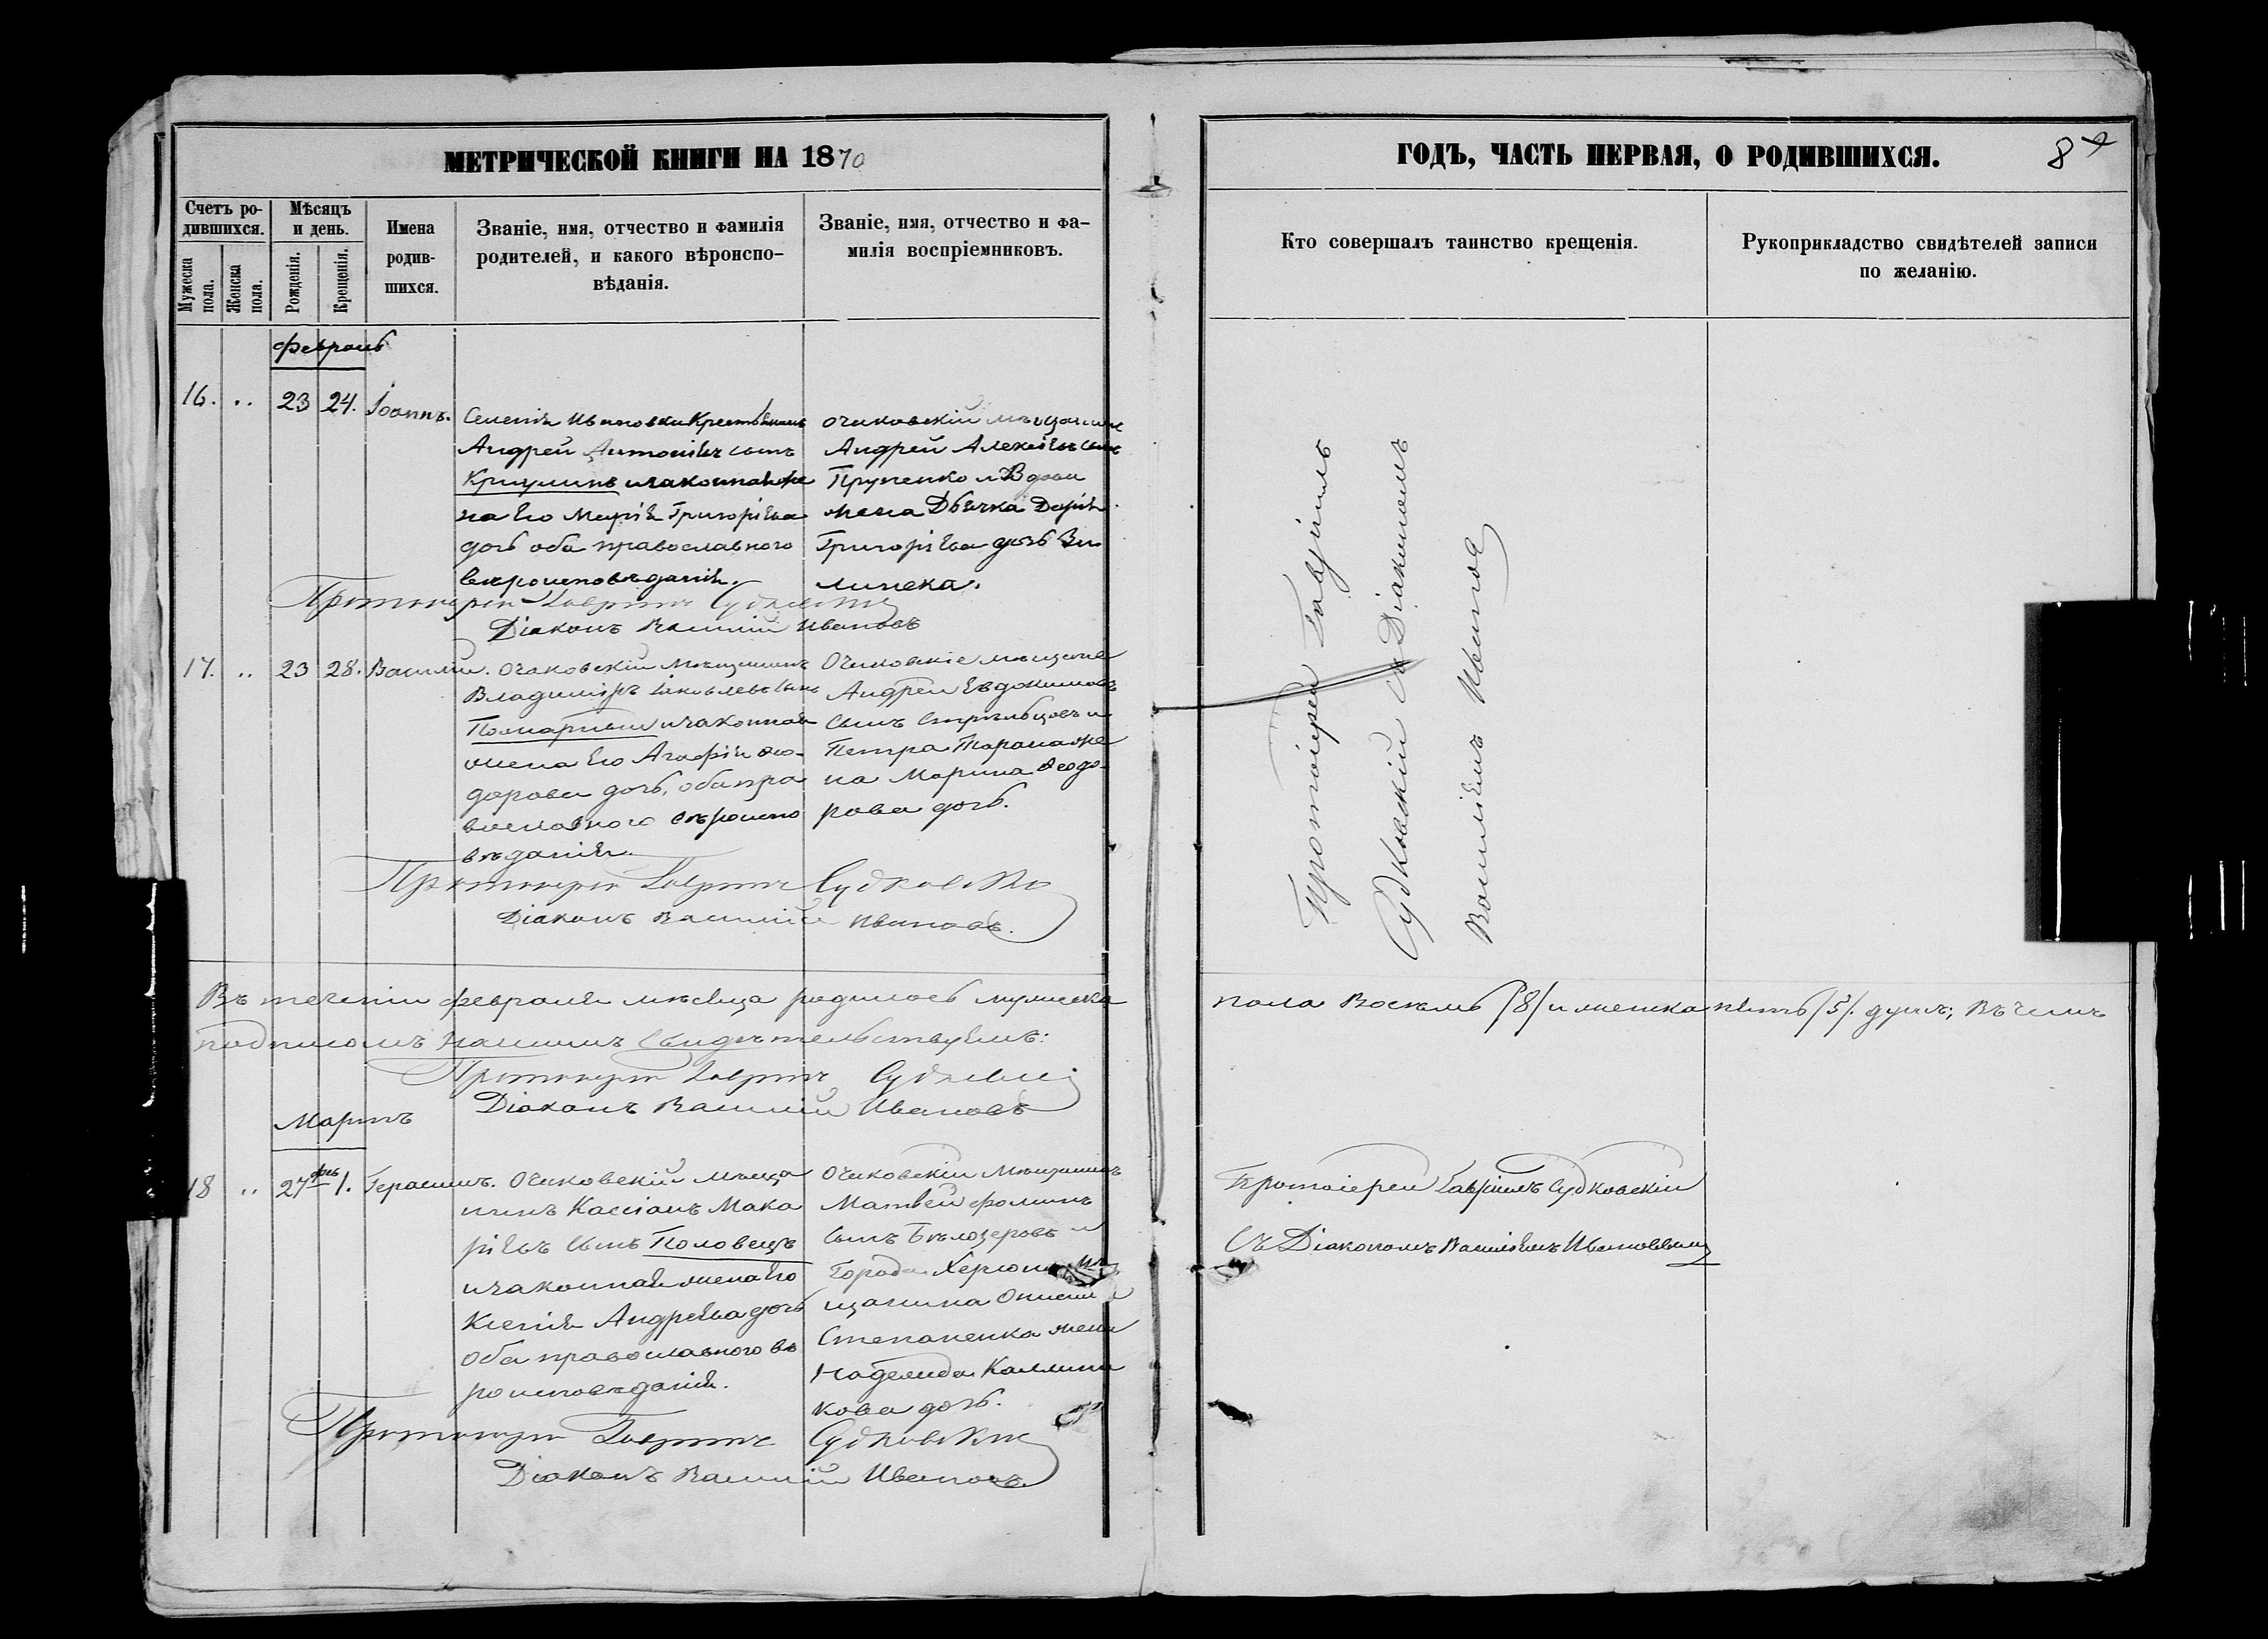 МЕТРИЧЕСКОЙ КНИГИ НА 1870
Счетъ ро-
дившихся.
Мужеска
пола.
Женска
пола.
Мѣсяцъ
и день.
Рожденія.
Крещенія.
Имена
родив-
шихся.
Званіе, имя, отчество и фамилія
родителей, и какого вѣроиспо-
вѣданія.
Званіе, имя, отчество и фа-
милія воспріемниковъ.
Февраль
16. .. 23 24. Іоаннъ.
Селенія Ивановки Крестьянинъ
Андрей Антоніевъ сынъ
и законная же
на его Марія Григоріева
дочь оба православнаго
вѣроисповѣданія.
Очаковскій мѣщанинъ
Андрей Алексѣевъ сынъ
и Вдова
Дарія
Григоріева дочь
Протоіерей Гавріилъ Судковскій
Діаконъ Василій Ивановъ
17. .. 23 28. Василій.
Очаковскій Мѣщанинъ
Владиміръ Іаковлевъ сынъ
и законная
жена его Агафія Ѳео-
дорова дочь, оба пра
вославнаго вѣроиспо
вѣданія.
Очаковскіе мѣщане
Андрей Евдокимовъ
сынъ Стрѣльцовъ и
Петра Тарана же
на Марина Ѳеодо-
рова дочь.
Протоіерей Гавріилъ Судковскій
Діаконъ Василій Ивановъ.
Въ теченіи Февраля мѣсяца родилось мужеска
подписомъ нашимъ свидѣтельствуемъ:
Протоіерей Гавріилъ Судковскій
Діаконъ Василій Ивановъ
Мартъ
18 .. 27 фев 1. Герасимъ.
Очаковскій мѣща
нинъ Кассіанъ Мака
ріевъ сынъ Половецъ
и законная жена его
Ксенія Андреева дочь
оба православнаго вѣ
роисповѣданія.
Очаковскій Мѣщанинъ
Матвей Фоминъ
сынъ Бѣлозеровъ и
города
щанина
Степаненка жена
Надежда Каллини
кова дочь.
Протоіерей Гавріилъ Судковскій
Діаконъ Василій Ивановъ.
ГОДЪ, ЧАСТЬ ПЕРВАЯ, О РОДИВШИХСЯ.
Кто совершалъ таинство крещенія.
Рукоприкладство свидѣтелей записи
по желанію.
Протоіерей Гавріилъ
Судковскій съ Діакономъ
Василіемъ
пола восемь /8/ и женска пять /5/. душъ; въ чемъ
Протоіерей Гавріилъ Судковскій
Съ Діакономъ Василіемъ Ивановымъ